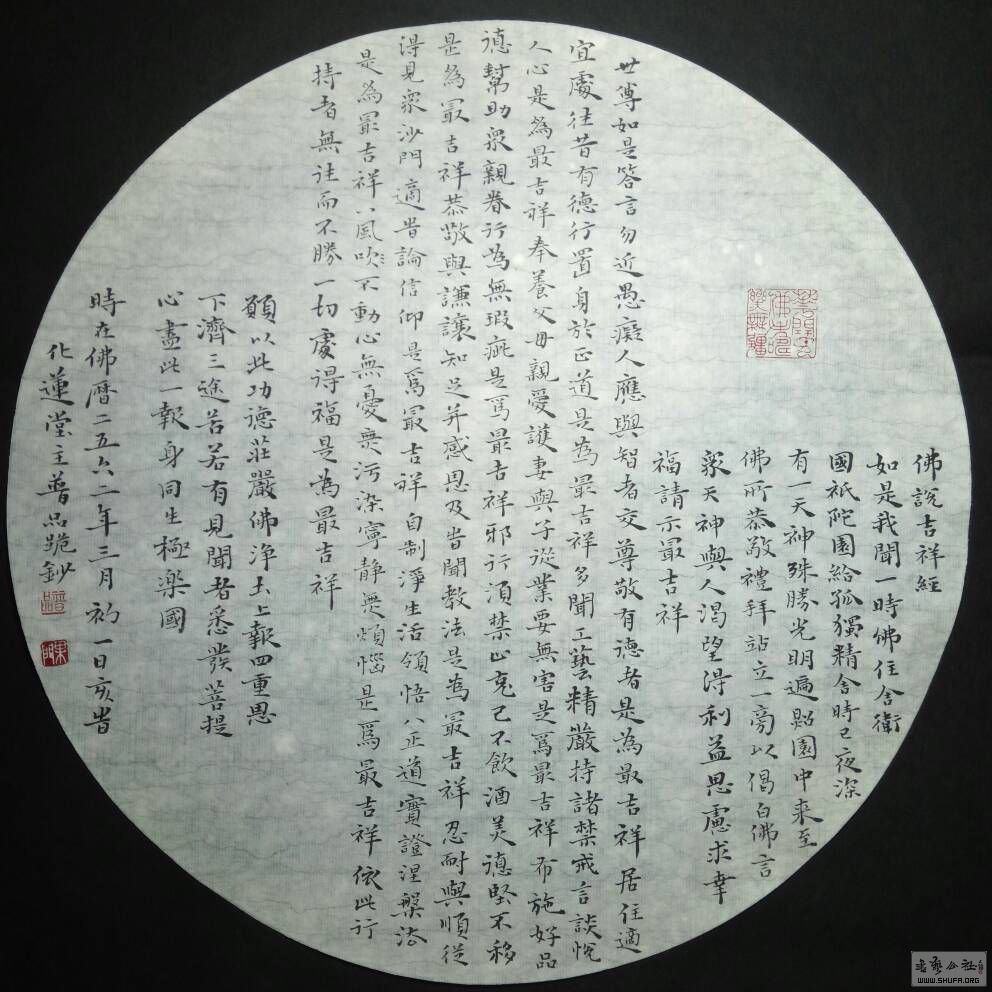 佛說吉祥經
如是我聞一時佛住舍衛
國祇陀園給孤獨精舍時已夜深
有一天神殊勝光明遍照園中来至
佛所恭敬禮拜站立一旁以偈白佛言
衆天神與人渴望得利益思慮求幸
福請示最吉祥
世尊如是答言勿近愚癡人應與智者交尊敬有德者是為最吉祥居住適
宜處往昔有德行置身於正道是為最吉祥多聞工藝精嚴持諸禁戒言談悅
人心是為最吉祥奉養父母親愛護妻與子從業要無害是為最吉祥布施好品
德幫助衆親眷行為無瑕疵是為最吉祥邪行須禁止克己不飲酒美德堅不移
是為最吉祥恭敬與謙讓知足并感恩及時聞教法是為最吉祥忍耐與順從
得見衆沙門適時論信仰是為最吉祥自制淨生活領悟八正道實證涅槃法
是為最吉祥八風吹不動心無憂無污染寧静無煩惱是為最吉祥依此行
持者無往而不勝一切處得福是為最吉祥
願以此功德莊嚴佛淨土上報四重恩
下濟三途苦若有見聞者悉發菩提
心盡此一報身同生極樂國
時在佛曆二五六二年三月初一日亥時
化蓮堂主普品跪鈔
書藝公社
WWW.SHUFA.ORG